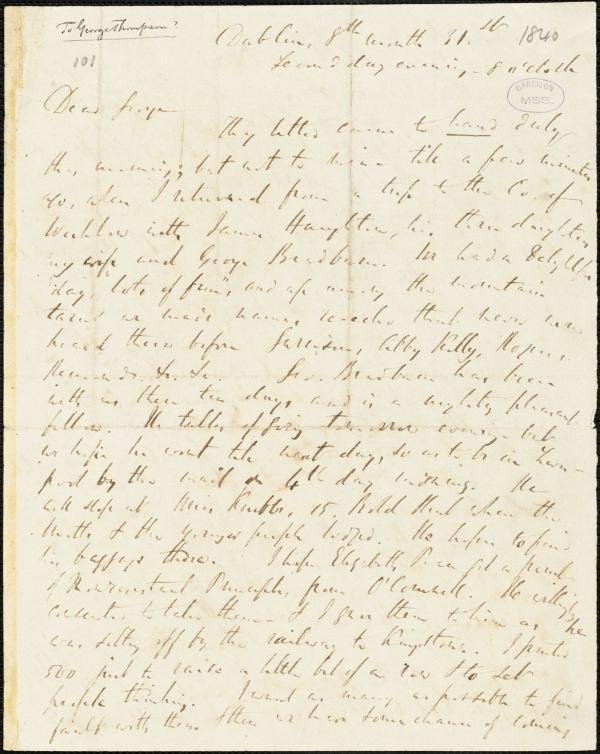 To George Thompson?
101
Dublin, 8th month 31.st 1840
Second day evening - 8 o'clock
GARRISON MSS.
Dear George
Thy letter came to hand duly
this morning; but not to mine till a few minutes
ago, when I returned from a trip to the Co. of
Wicklow with James Haughton, his three daughters
my wife and George Bradburn. We had a delightful
day lots of fun, and up among the mountain
tarns we made names reecho that never were
heard there before Garrison, Abby Kelly, Rogers,
Remond &c. &c. Geo. Bradburn has been
with us these ten days and is a mighty pleasant
fellow. He talks of going tomorrow evening - but
we hope he wont till next day, so as to be in Liver-
pool by the mail on 4th day morning. He
will stop at Miss Knibbs, 15, Bold Street where the
Motts & the younger people lodged. He hopes to find
his baggage there. I hope Elizabeth P. can get a parcel
of Nonresistant Principles from O'Connell. He willingly
consented to take them - & I gave them to him as he
was setting off by the railway to Kingstown. I printed
500 just to raise a little bit of a row & to set
people thinking. I want as many as possible to find
fault with them & then we have some chance of coming